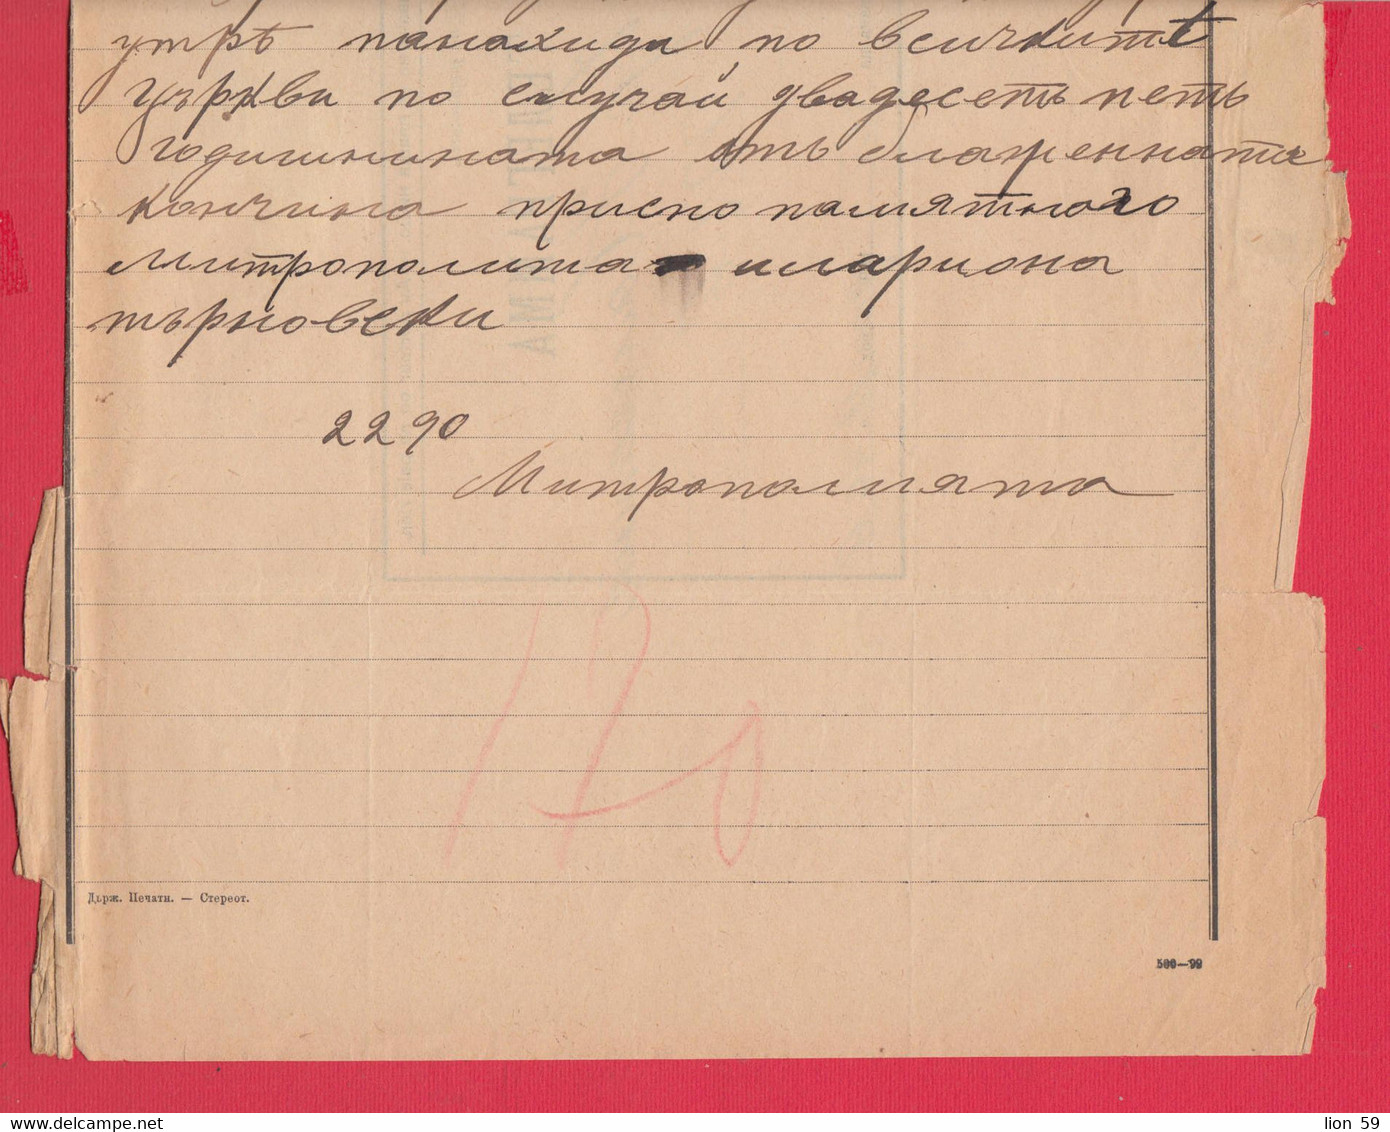 утрѣ панахида по всичкитѣ
църкви по случай двадесеть петь
годишнината отъ блаженната
кончина приспо памятного
Митрополита илариона
търновски
2290
Митрополията
170
Държ. Печатн. — Стереот.
500—99
lion 59